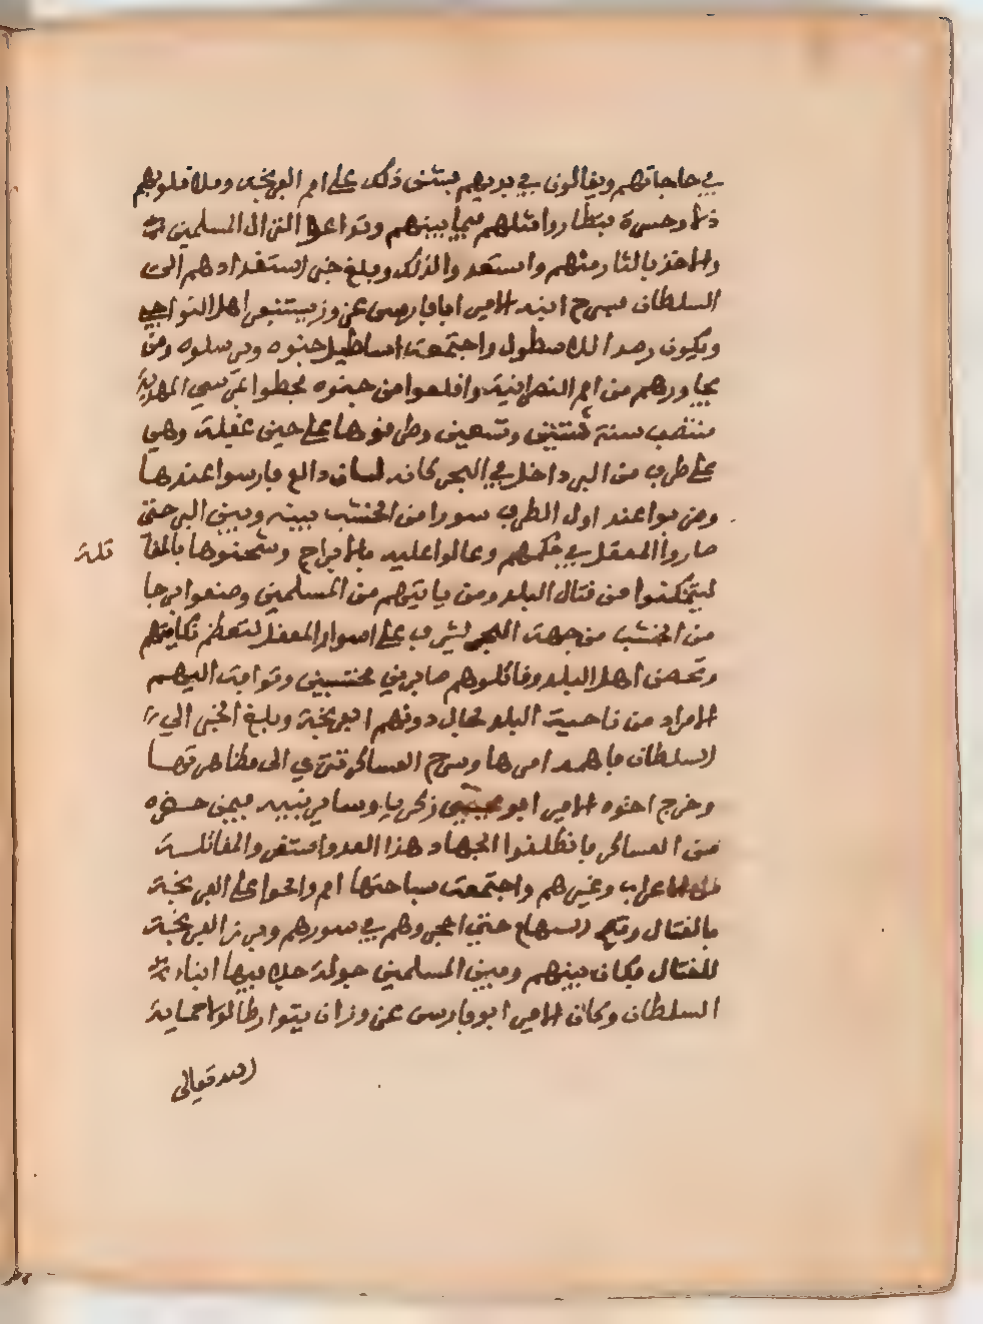 في حاجاتهم ويغالون في فديتهم فشق ذلك على امم الفرنجة وملا قلوبهم
ذلا وحسرة فتظاروا مثلهم فيما بينهم وتداعوا النزال المسلمين
والاخذ بالثار منهم واستعدوا لذلك وبلغ خبر استعدادهم الى
السلطان فسرح ابنه الامير ابا فارس عزوز يستنفر اهل النواحي
ويكون رصدا للاسطول واجتمعت اساطيل جنوه وبرسلوه ومن
يجاورهم من امم النصرانية واقلعوا من جنوه فحطوا بمرسى المهدية
منتصف سنة ثنتين وتسعين وطرقوها على حين غفلة وهي
على طرف من البر داخل في البحر كانه لسان دالع فارسوا عندها
وضربوا عند اول الطرف سورا من الخشب بينه وبين البر حتى
صاروا المعقل في حكمهم وعالوا عليه بالابراج وشحنوها بالمقا
تلة
ليتمكنوا من قتال البلد ومن ياتيهم من المسلمين وصنعوا برجا
من الخشب من جهة البحر يشرف على اسوار المعقل لتعظم نكايتهم
وتحصن اهل البلد وقاتلوهم صابرين محتسبين وتوافت اليهم
الامداد من ناحية البلد فحال دونهم الفرنجة وبلغ الخبر الى
السلطان فاهمه امرها وسرح العساكر تترى الى مظاهرتها
وخرج اخوه الامير ابو يحيى زكريا وساير بنيه فيمن حضره
من العساكر فانطلقوا لجهاد هذا العدو واستنفر والمقاتلة
من الاعراب وغيرهم واجتمعت بساحتها امم والحوا على الفرنجة
بالقتال ونضح السهام حتى احجروهم في سورهم وبرز الفرنجة
للقتال فكان بينهم وبين المسلمين جولة جلا فيها ابناء
السلطان وكان الامير ابو فارس عزوز ان يتورط لولا حماية
الله تعالى